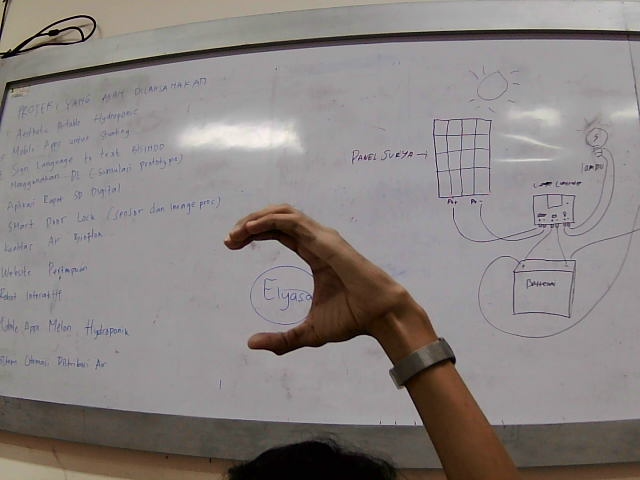 PROJEK YANG AKAN DILAKSANAKAN
Aesthetic Portable Hydroponic
Mobile Apps untuk
Sign Language to text BISINDO
Menggunakan DL (simulasi prototype)
Aplikasi Rapor SD Digital
Smart Door Lock (sensor dan image proc)
Kualitas Air Bioflok
Website
Robot Interaktif
Mobile Apps Melon Hydroponik
Sistem Otomasi Distribusi Air
Elyasa
PANEL SURYA
P+ P-
LAMPU
Baterai